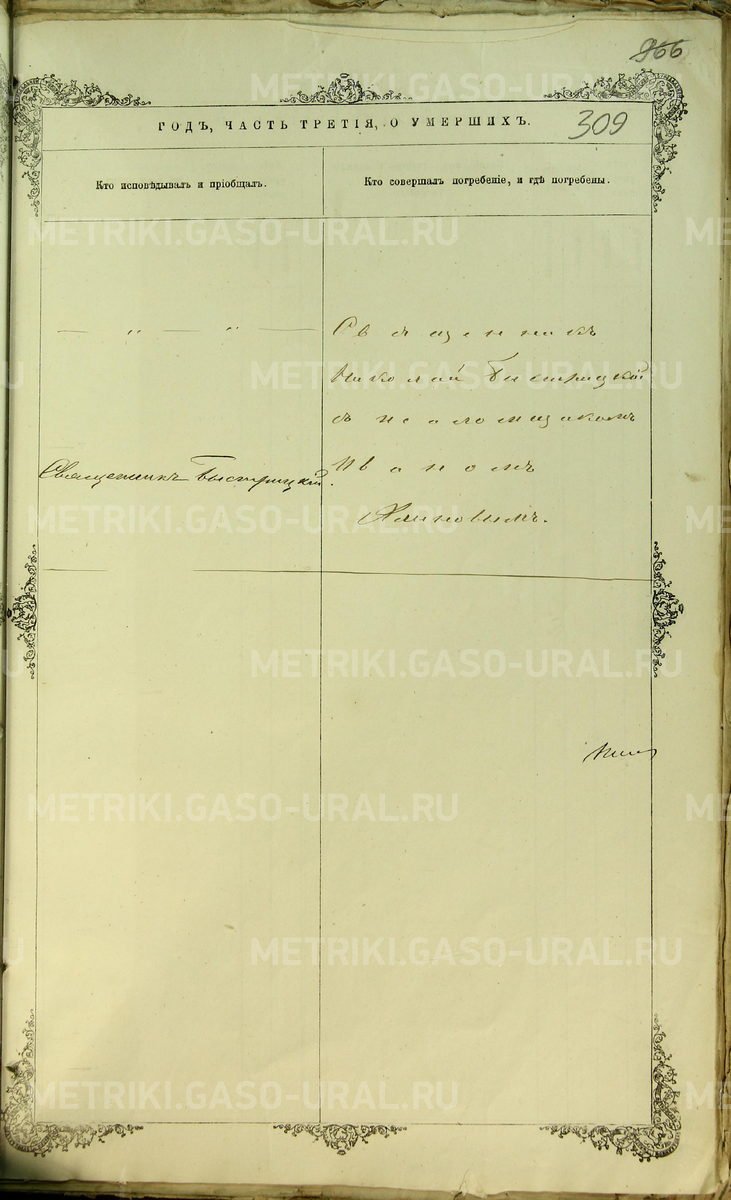 866
309
ГОДЪ, ЧАСТЬ ТРЕТІЯ, О УМЕРШИХЪ.
Кто исповѣдывалъ и пріобщалъ.
Кто совершалъ погребеніе, и гдѣ погребены.
— „ — „ —
Священникъ
Николай Быстрицкій
съ псаломщикомъ
Священникъ Быстрицкій
Иваномъ
METRIKI.GASO-URAL.RU